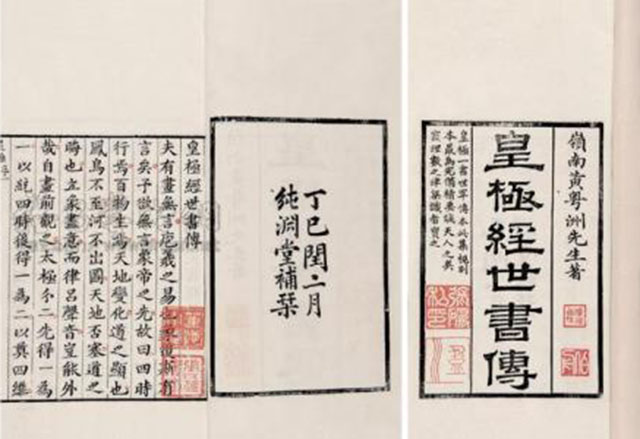 嶺南黃粵洲先生著
皇極經世書傳
皇極一書世罕傳本此集
本最為完備精要誠天人之奧
理數之津梁識者寶之
丁巳閏二月
純淵堂補栞
皇極經世書傳
夫有畫無言庖羲之易也
言矣予欲無言象帝之先故曰四時
行焉百物生焉天地變化道之顯也
鳳鳥不至河不出圖天地否塞道之
晦也立象盡意而律呂聲音豈能外
哉自畫前觀之太極分二先得一為
一以統四時後得一為二以奠四維